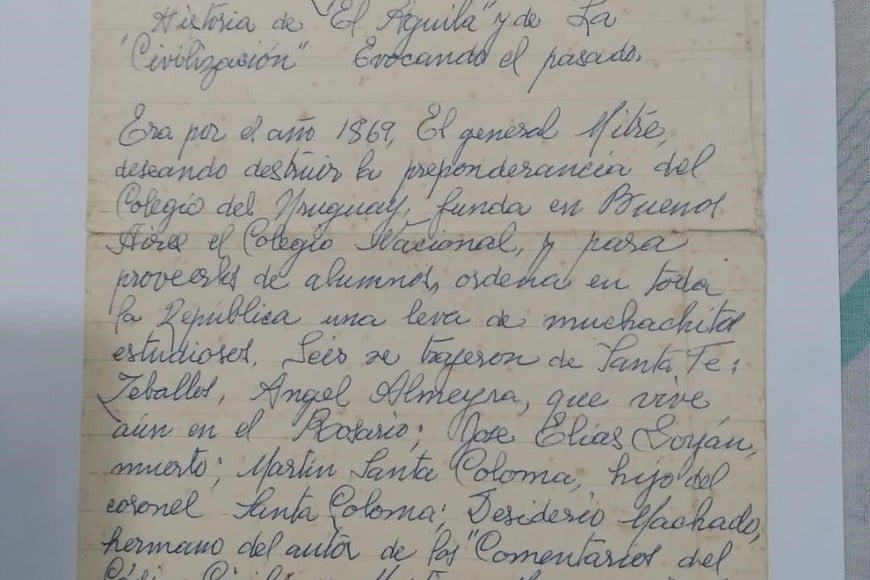 Historia de "El Aguila" y de "La
"Civilización" Evocando el pasado.
Era por el año 1869, El general Mitre,
deseando destruir la preponderancia del
Colegio del Uruguay, funda en Buenos
Aires el Colegio Nacional, y para
proveerlos de alumnos, ordena en toda
la República una leva de muchachitos
estudiosos. Seis se trajeron de Santa Fe:
Zeballos, Angel Almeyra, que vive
aún en el Rosario; José Elías Goyán,
muerto; Martín Santa Coloma, hijo del
coronel Santa Coloma; Desiderio Machado,
hermano del autor de los "Comentarios del